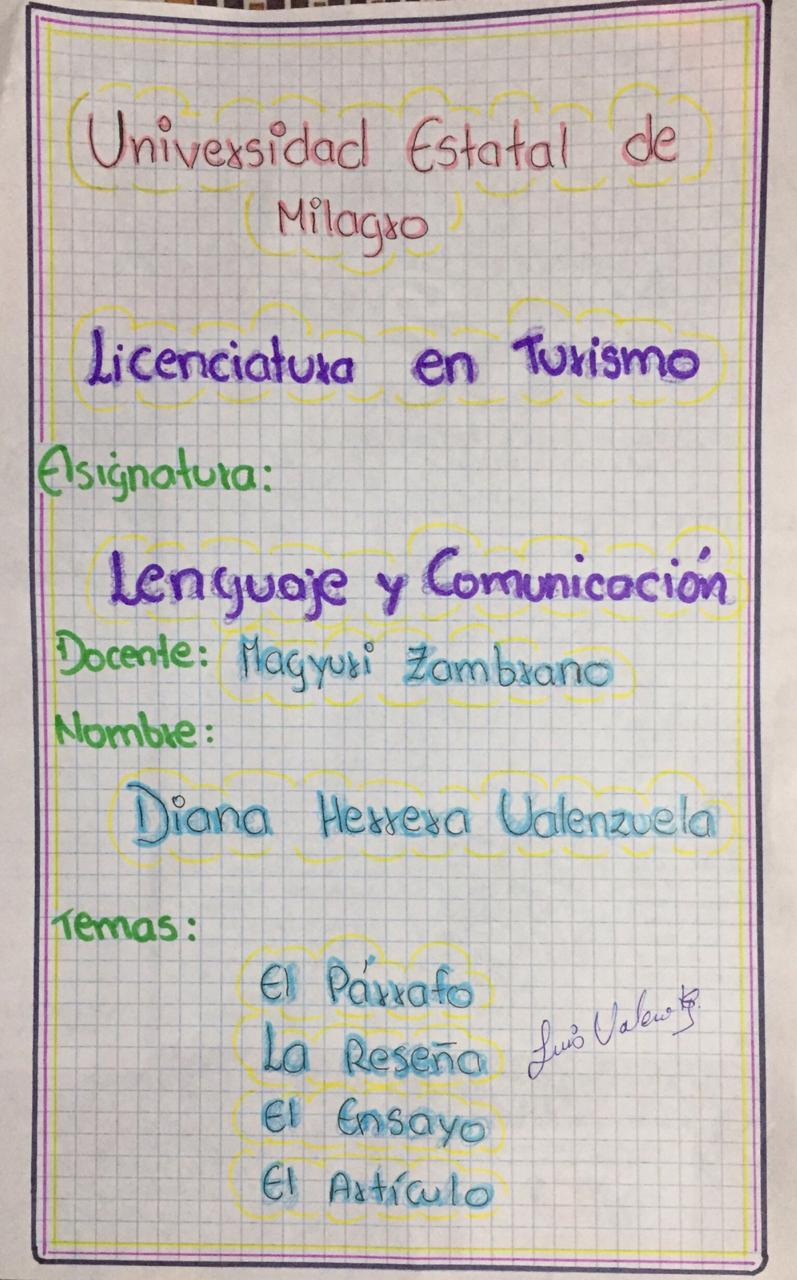 Universidad Estatal de
Milagro
Licenciatura en Turismo
Asignatura:
Lenguaje y Comunicación
Docente: Magyuri Zambrano
Nombre:
Diana Herrera Valenzuela
Temas:
El Párrafo
La Reseña
El Ensayo
El Artículo
Luis